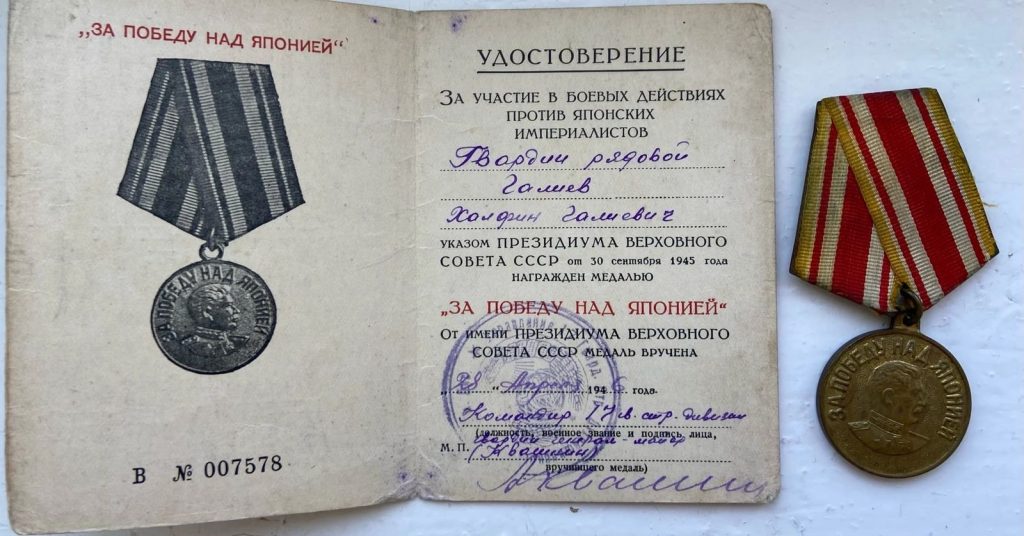 „ЗА ПОБЕДУ НАД ЯПОНИЕЙ“
ЗА ПОБЕДУ НАД ЯПОНИЕЙ
В № 007578
УДОСТОВЕРЕНИЕ
ЗА УЧАСТИЕ В БОЕВЫХ ДЕЙСТВИЯХ
ПРОТИВ ЯПОНСКИХ
ИМПЕРИАЛИСТОВ
Гвардии рядовой
Галиев
Галиевич
УКАЗОМ ПРЕЗИДИУМА ВЕРХОВНОГО
СОВЕТА СССР от 30 сентября 1945 года
НАГРАЖДЕН МЕДАЛЬЮ
„ЗА ПОБЕДУ НАД ЯПОНИЕЙ“
ОТ ИМЕНИ ПРЕЗИДИУМА ВЕРХОВНОГО
СОВЕТА СССР МЕДАЛЬ ВРУЧЕНА
„28 “ Апреля 1946 года.
Командир 17 гв. стр. дивизии
(должность, военное звание и подпись лица,
гвардии генерал-майор
М. П. (Квашнин)
вручившего медаль)
Квашнин
ЗА ПОБЕДУ НАД ЯПОНИЕЙ